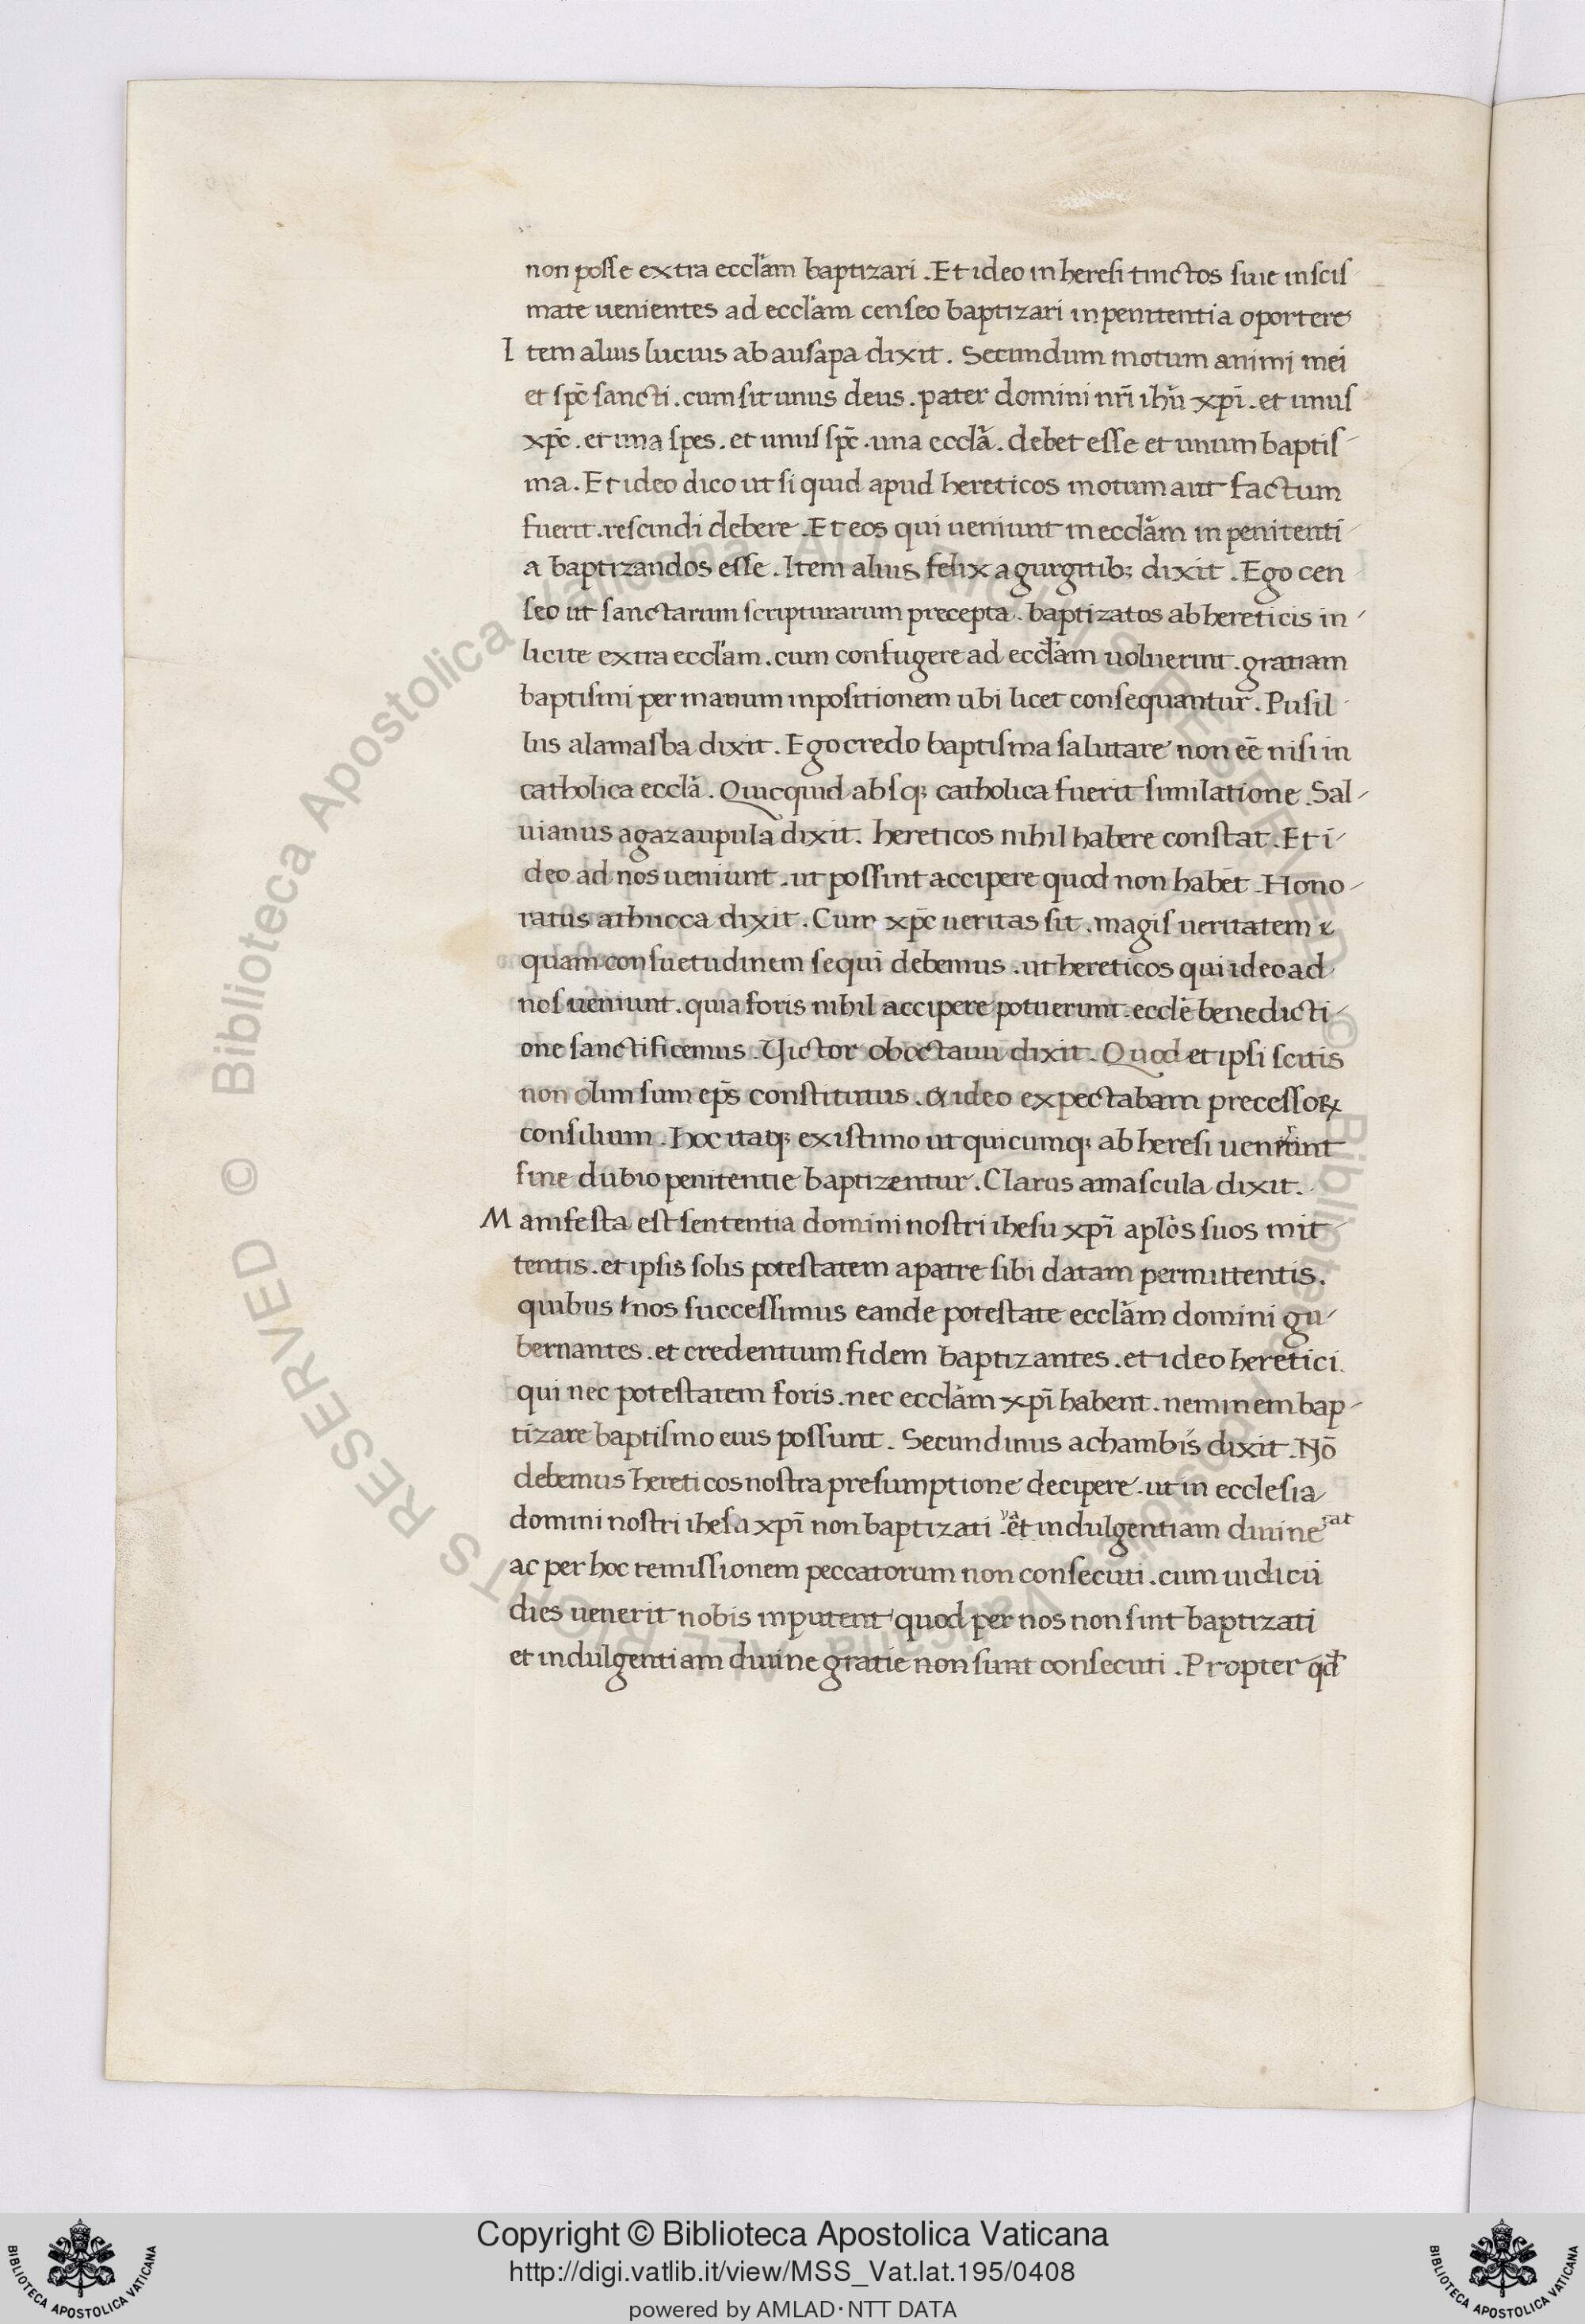 non posse extra eccl̄am baptizari . Et ideo in heresi tinctos siue in scis
mate uenientes ad eccl̄am censeo baptizari in penitentia oportere
Item alius lucius ab ausapa dixit . Secundum motum animi mei
et sp̄c sancti . cum sit unus deus . pater domini nr̄i ihū xp̄i . et unus
xp̄c . et una spes . et unus sp̄c . una eccl̄a . debet esse et unum baptis
ma . Et ideo dico ut si quid apud hereticos motum aut factum
fuerit . rescindi debere . Et eos qui ueniunt in eccl̄am in penitenti
a baptizandos esse . Item alius felix a gurgitib; dixit . Ego cen
seo ut sanctarum scripturarum precepta . baptizatos ab hereticis in
licite extra eccl̄am . cum confugere ad eccl̄am uoluerint . gratiam
baptismi per manum inpositionem ubi licet consequantur . Pusil
lus alamasba dixit . Ego credo baptisma salutare non eē nisi in
catholica eccl̄a . Quicquid absq; catholica fuerit similatione . Sal
uianus agazaupula dixit . hereticos nihil habere constat . Et i
deo ad nos ueniunt . ut possint accipere quod non habēt . Hono
ratus atbucca dixit . Cum xp̄c ueritas sit . magis ueritatem
quam consuetudinem sequi debemus . ut hereticos qui ideo ad
nos ueniunt . quia foris nihil accipere potuerunt . eccl̄e benedicti
one sanctificemus . Victor oboctauu dixit . Quod et ipsi scitis
non olim sum ep̄s constitutus . & ideo expectabam precessoꝝ
consilium . Hoc itaq; existimo ut quicumq; ab heresi uenerint
sine dubio penitentie baptizentur . Clarus amascula dixit .
Manifesta est sententia domini nostri ihesu xp̄i apl̄os suos mit
tentis . et ipsis solis potestatem a patre sibi datam permittentis .
quibus & nos successimus eande potestate eccl̄am domini gu
bernantes . et credentium fidem baptizantes . et ideo heretici
qui nec potestatem foris . nec eccl̄am xp̄i habent . neminem bap
tizare baptismo eius possunt . Secundinus achambis dixit . Nō
debemus hereticos nostra presumptione decipere . ut in ecclesia
domini nostri ihesu xp̄i non baptizati . et indulgentiam diuine
ac per hoc remissionem peccatorum non consecuti . cum iudicii
dies uenerit nobis inputent quod per nos non sint baptizati
et indulgentiam diuine gratie non sunt consecuti . Propter qđ
Copyright © Biblioteca Apostolica Vaticana
http://digi.vatlib.it/view/MSS_Vat.lat.195/0408
powered by AMLAD·NTT DATA